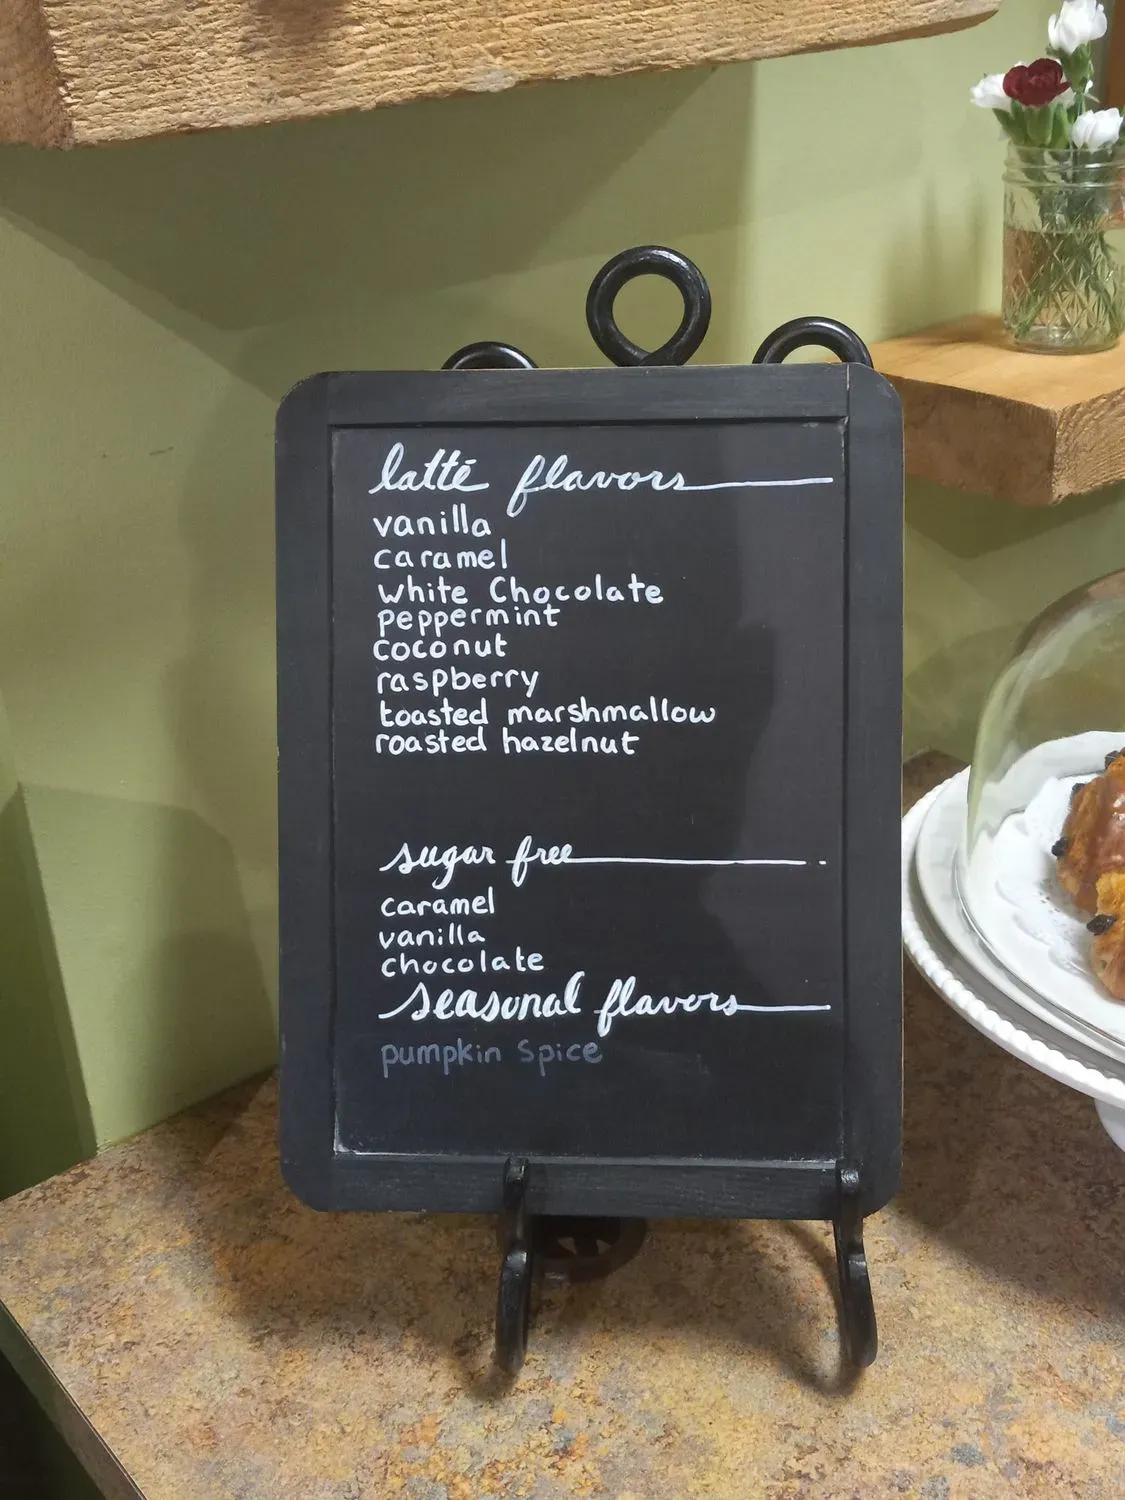 latté flavors
vanilla
caramel
white Chocolate
peppermint
coconut
raspberry
toasted marshmallow
roasted hazelnut
sugar free
caramel
vanilla
chocolate
seasonal flavors
pumpkin spice